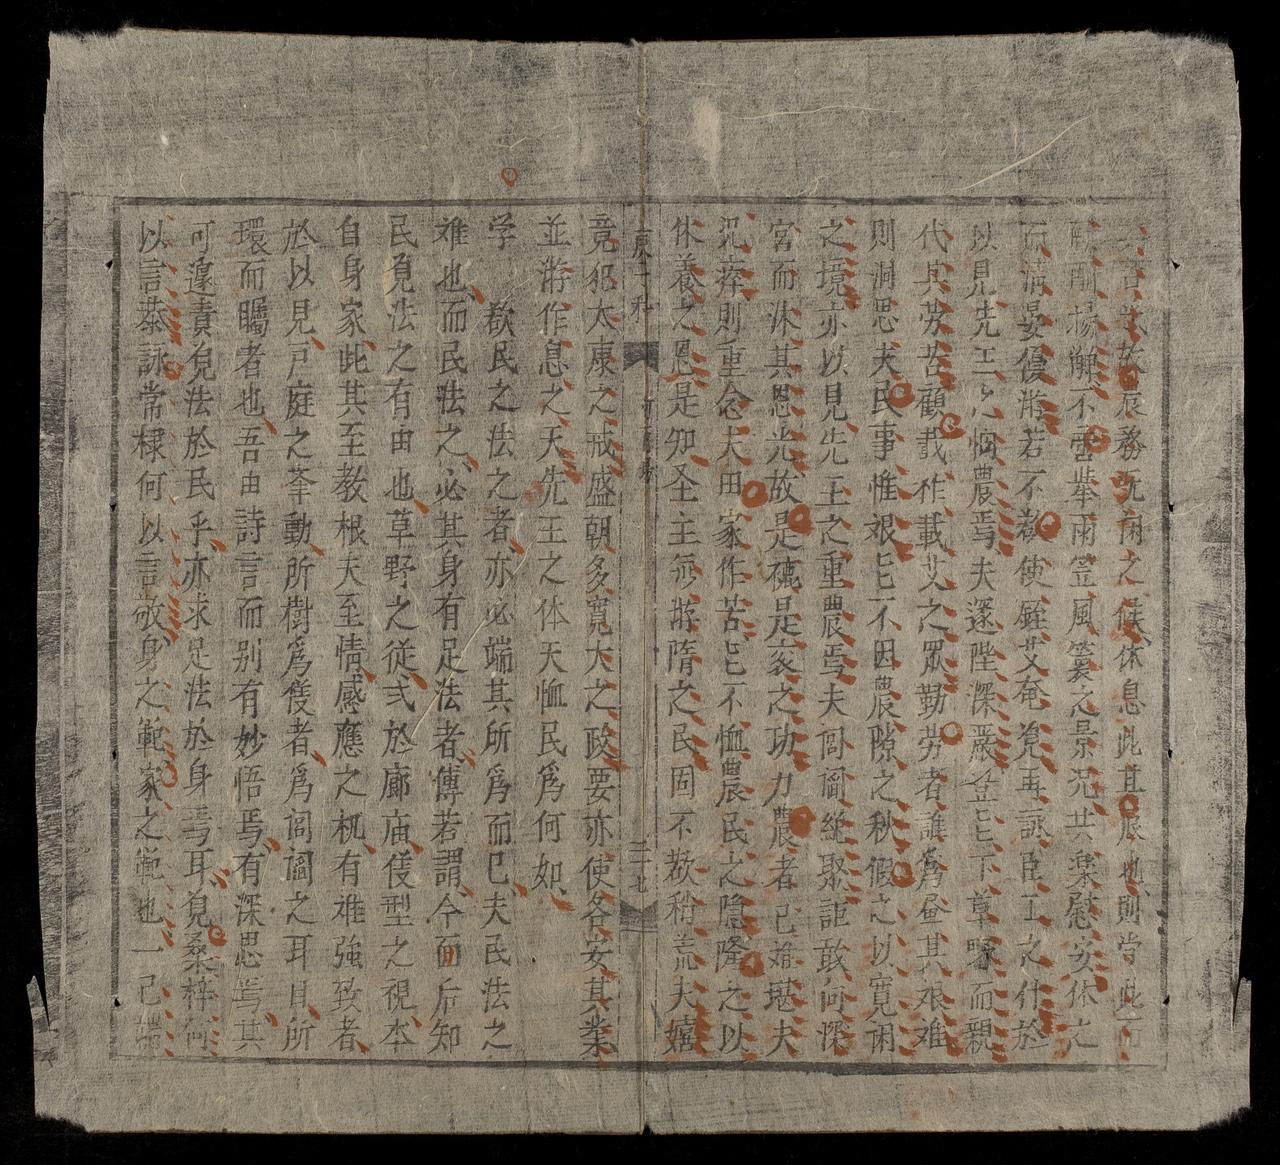 言哉故展務既閑之候休息此其服也則嘗此而
酬揚觶不雲犖雨笠風簑之景况其樂慰安休之
而清晏優游若不敎使銍艾奄覓再詠臣工之什於
以見先王之悯農焉夫邃陛深嚴豈忘下草啄而親
代其劳苦顧載柞載艾之眾勤劳者誰爲昼其艰难
則洞思夫民事惟艰忘不因農隙之秋假之以寛闲
之境亦以見先王之重農焉夫闾阎総聚詎敢何深
宫而沐其恩光故是穮是蓘之功力農者已难堪夫
况瘁則重念夫田家作苦忘不恤農民之隐隆之以
休養之恩是知圣主無游隋之民固不敎稍荒夫嬉
東一和
二七
竟犯太康之戒盛朝多寛大之政要亦使各安其業
並游作息之天先王之体天恤民爲何如
学 敎民之法之者亦必端其所爲而已夫民法之
难也而民法之必其身有足法者傳若謂今而后知
民覓法之有由也草野之従弍於廊庙佞型之視本
自身家此其至教根夫至情感應之机有难強致者
於以見戸庭之荃動所樹爲佞者爲闾阎之耳目所
環而矚者也吾由詩言而别有妙悟焉有深思焉其
可遽責覓法於民乎亦求足法於身焉耳覓桑梓何
以言恭詠常棣何以言敬身之範家之範也一己端